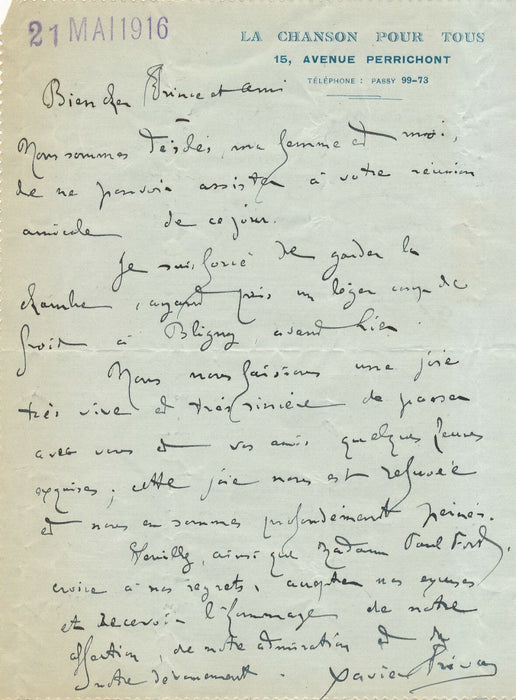 21 MAI 1916
LA CHANSON POUR TOUS
15, AVENUE PERRICHONT
TÉLÉPHONE : PASSY 99-73
Bien cher Prince et ami
Nous sommes désolés, ma femme et moi,
de ne pouvoir assister à votre réunion
amicale de ce jour.
Je suis forcé de garder la
chambre, ayant pris un léger coup de
froid à Bligny, avant hier.
Nous nous faisions une joie
très vive et très sincère de passer
avec vous et vos amis quelques heures
exquises ; cette joie nous est refusée
et nous en sommes profondément peinés.
Veuillez, ainsi que Madame Paul Fort,
croire à nos regrets, accepter nos excuses
et recevoir l'hommage de notre
affection, de notre admiration et de
notre dévouement. Xavier Privas